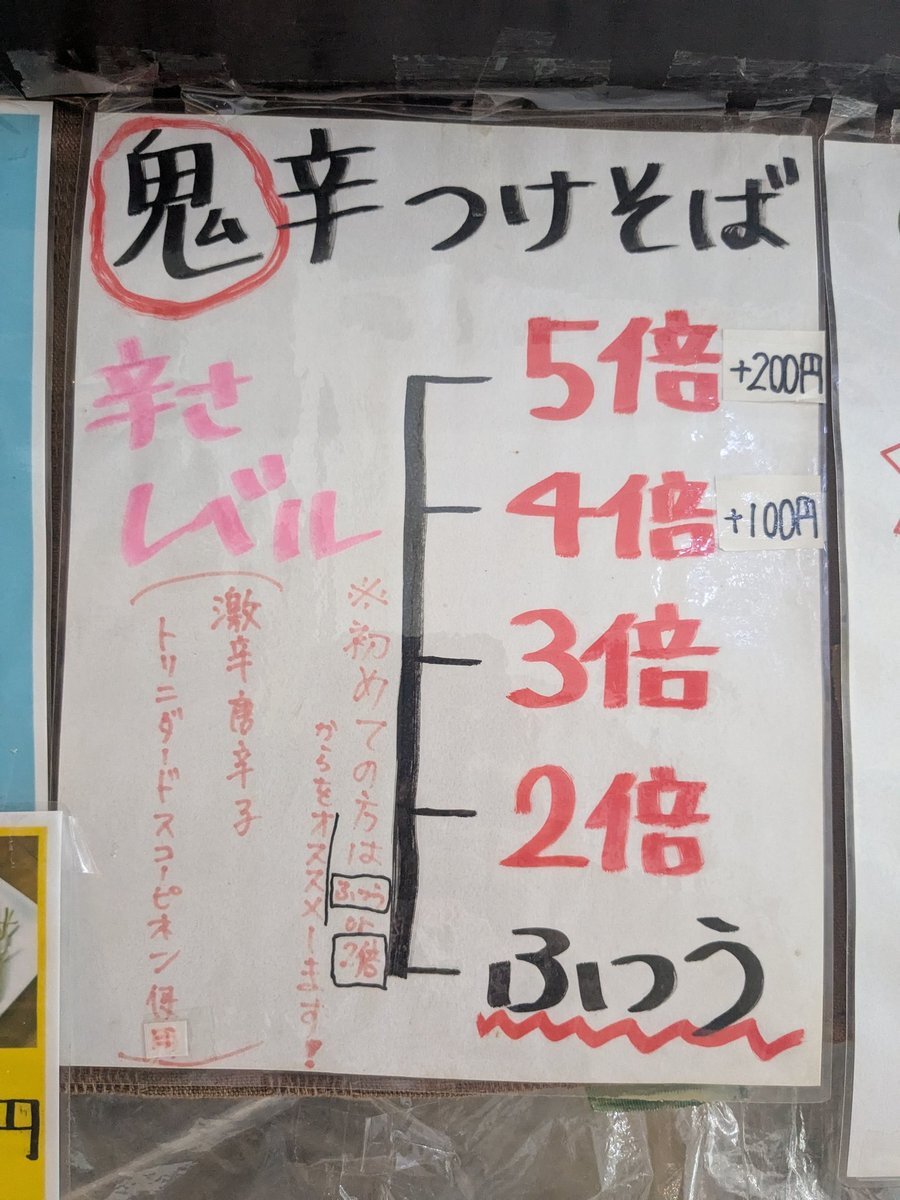 鬼辛つけそば
辛さ
レベル
5倍 +200円
4倍 +100円
3倍
2倍
ふつう
※初めての方はふつうor2倍
からをオススメします!
激辛唐辛子
トリニダードスコーピオン使用
円